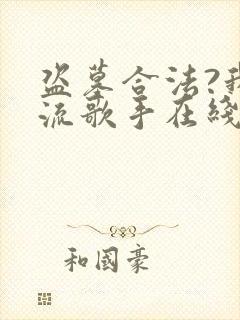 盗墓合法?我
流歌手在线
和国豪